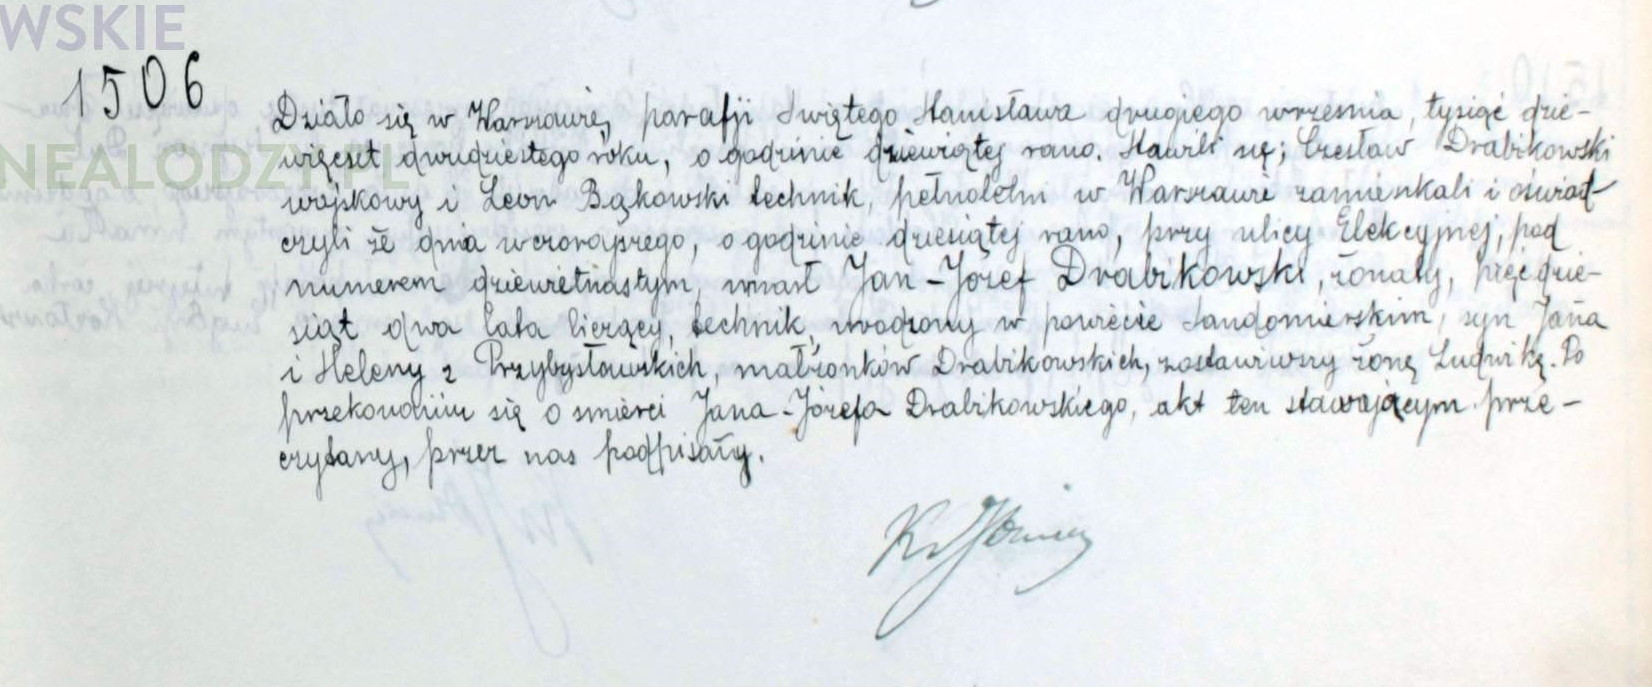 WSKIE
1506
Działo się w Warszawie, parafji Świętego Stanisława drugiego września, tysiąc dzie-
więcset dwudziestego roku, o godzinie dziewiątej rano. Stawili się; Czesław Drabikowski
NEALODZY.PL
wojskowy i Leon Bąkowski technik, pełnoletni w Warszawie zamieszkali i oświad-
czyli że dnia wczorajszego, o godzinie dziesiątej rano, przy ulicy Elekcyjnej, pod
numerem dziewiętnastym, umarł Jan-Józef Drabikowski, żonaty, pięćdzie-
siąt dwa lata liczący, technik, urodzony w powiecie Sandomierskim, syn Jana
i Heleny z Przybysławskich, małżonków Drabikowskich, zostawiwszy żonę Ludwikę. Po
przekonaniu się o śmierci Jana-Józefa Drabikowskiego, akt ten stawającym prze-
czytany, przez nas podpisały.